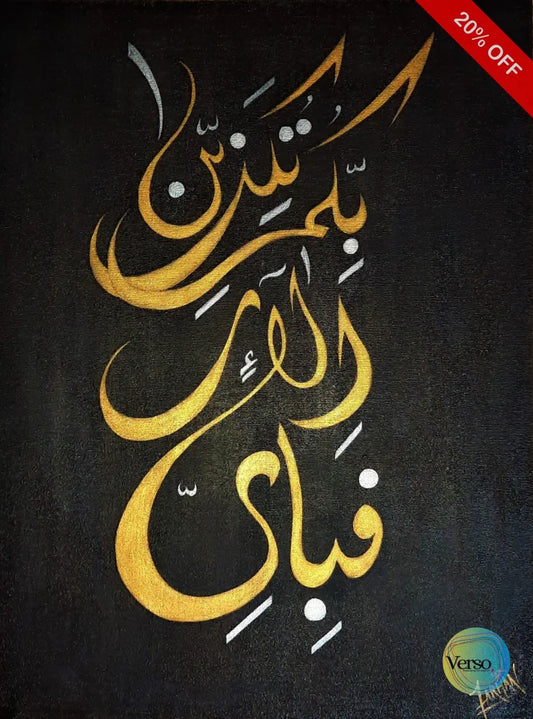 20% OFF
فَبِاَيِّ
اٰلَآءِ
رَبِّكُمَا
تُكَذِّبٰنِ
Verso